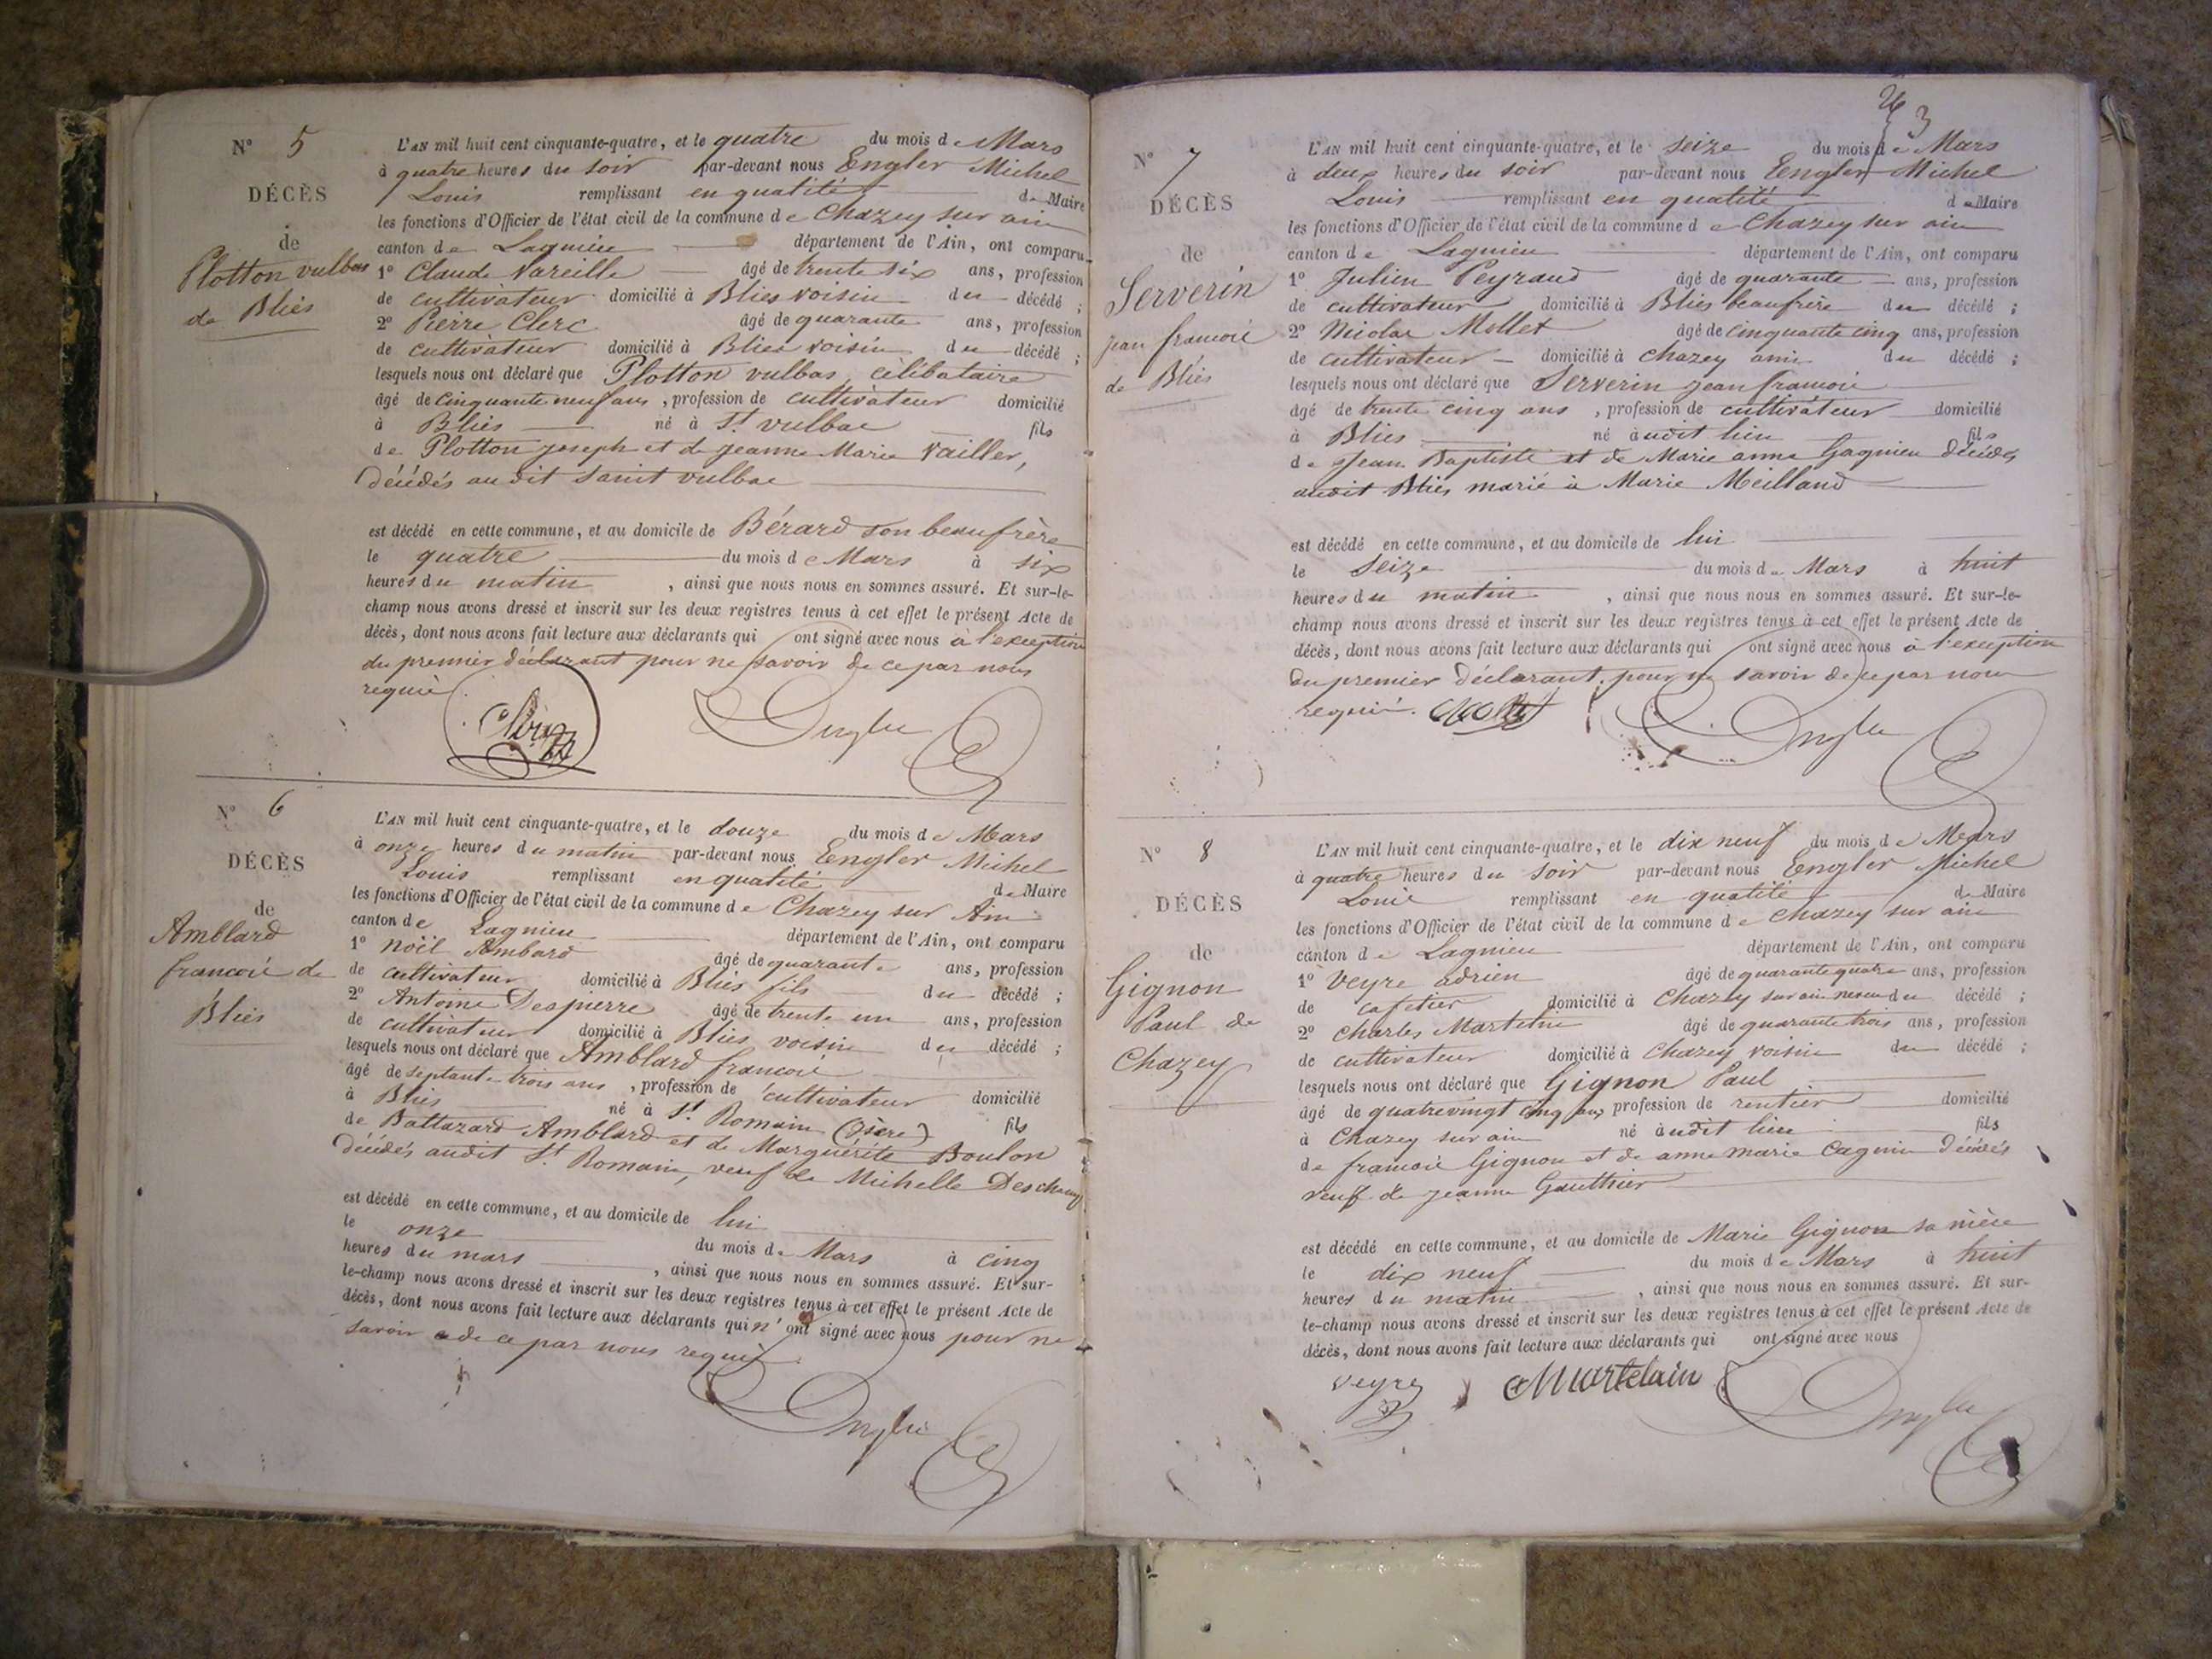 N° 5
DÉCÈS
de
Plotton vulbas
de Bliés
L'AN mil huit cent cinquante-quatre, et le quatre du mois de Mars
à quatre heures du soir par-devant nous Engler Michel
Louis remplissant en qualité de Maire
les fonctions d'Officier de l'état civil de la commune de Chazey sur ain
canton de Lagnieu département de l'Ain, ont comparu
1° Claude Vareille âgé de trente six ans, profession
de cultivateur domicilié à Blies voisin du décédé ;
2° Pierre Clerc âgé de quarante ans, profession
de cultivateur domicilié à Blies voisin du décédé ;
lesquels nous ont déclaré que Plotton vulbas, célibataire
âgé de cinquante neuf ans, profession de cultivateur domicilié
à Bliés né à St vulbas fils
de Plotton joseph et de jeanne Marie Vailler,
décédés au dit Saint vulbas
est décédé en cette commune, et au domicile de Bérard son beaufrère
le quatre du mois de Mars à six
heures du matin, ainsi que nous nous en sommes assuré. Et sur-le-
champ nous avons dressé et inscrit sur les deux registres tenus à cet effet le présent Acte de
décès, dont nous avons fait lecture aux déclarants qui ont signé avec nous à l'exception
du premier déclarant pour ne savoir de ce par nous
requis.
Engler
N° 6
DÉCÈS
de
Amblard
francois de
Bliés
L'AN mil huit cent cinquante-quatre, et le douze du mois de Mars
à onze heures du matin par-devant nous Engler Michel
Louis remplissant en qualité de Maire
les fonctions d'Officier de l'état civil de la commune de Chazey sur Ain
canton de Lagnieu département de l'Ain, ont comparu
1° noël Ambard âgé de quarante ans, profession
de cultivateur domicilié à Bliés fils du décédé ;
2° Antoine Despierre âgé de trente un ans, profession
de cultivateur domicilié à Bliés voisin du décédé ;
lesquels nous ont déclaré que Amblard francois
âgé de septante trois ans, profession de cultivateur domicilié
à Bliés né à St Romain (Isère) fils
de Baltazard Amblard et de Marguérite Boulon
décédés audit St Romain, veuf de Michelle Deschamp
est décédé en cette commune, et au domicile de lui
le onze du mois de Mars à cinq
heures du mars, ainsi que nous nous en sommes assuré. Et sur-
le-champ nous avons dressé et inscrit sur les deux registres tenus à cet effet le présent Acte de
décès, dont nous avons fait lecture aux déclarants qui n'ont signé avec nous pour ne
savoir de ce par nous requis
Engler
3
N° 7
DÉCÈS
de
Serverin
jean francois
de Bliés
L'AN mil huit cent cinquante-quatre, et le seize du mois de Mars
à deux heures du soir par-devant nous Engler Michel
Louis remplissant en qualité de Maire
les fonctions d'Officier de l'état civil de la commune de Chazey sur ain
canton de Lagnieu département de l'Ain, ont comparu
1° Julien Peyraud âgé de quarante ans, profession
de cultivateur domicilié à Bliés beaufrère du décédé ;
2° Nicolas Mollet âgé de cinquante cinq ans, profession
de cultivateur domicilié à chazey ami du décédé ;
lesquels nous ont déclaré que Serverin jean francois
âgé de trente cinq ans, profession de cultivateur domicilié
à Bliés né audit lieu fils
de Jean Baptiste et de Marie anne Gagnieu décédés
audit Bliés marié à Marie Meilland
est décédé en cette commune, et au domicile de lui
le Seize du mois de Mars à huit
heures du matin, ainsi que nous nous en sommes assuré. Et sur-le-
champ nous avons dressé et inscrit sur les deux registres tenus à cet effet le présent Acte de
décès, dont nous avons fait lecture aux déclarants qui ont signé avec nous à l'exception
du premier déclarant pour ne savoir de ce par nous
requis. Engler
N° 8
DÉCÈS
de
Gignon
Paul de
Chazey
L'AN mil huit cent cinquante-quatre, et le dix neuf du mois de Mars
à quatre heures du Soir par-devant nous Engler Michel
Louis remplissant en qualité de Maire
les fonctions d'Officier de l'état civil de la commune de chazey sur ain
canton de Lagnieu département de l'Ain, ont comparu
1° Veyre adrien âgé de quarante quatre ans, profession
de cafetier domicilié à Chazey sur ain neveu du décédé ;
2° Charles Martelin âgé de quarante trois ans, profession
de cultivateur domicilié à Chazey voisin du décédé ;
lesquels nous ont déclaré que Gignon Paul
âgé de quatrevingt cinq ans profession de rentier domicilié
à Chazey sur ain né audit lieu fils
de francois Gignon et de anne marie Cagnin décédés
veuf de jeanne Gauthier
est décédé en cette commune, et au domicile de Marie Gignon sa nièce
le dix neuf du mois de Mars à huit
heures du matin, ainsi que nous nous en sommes assuré. Et sur-
le-champ nous avons dressé et inscrit sur les deux registres tenus à cet effet le présent Acte de
décès, dont nous avons fait lecture aux déclarants qui ont signé avec nous
Veyre Martelain Engler